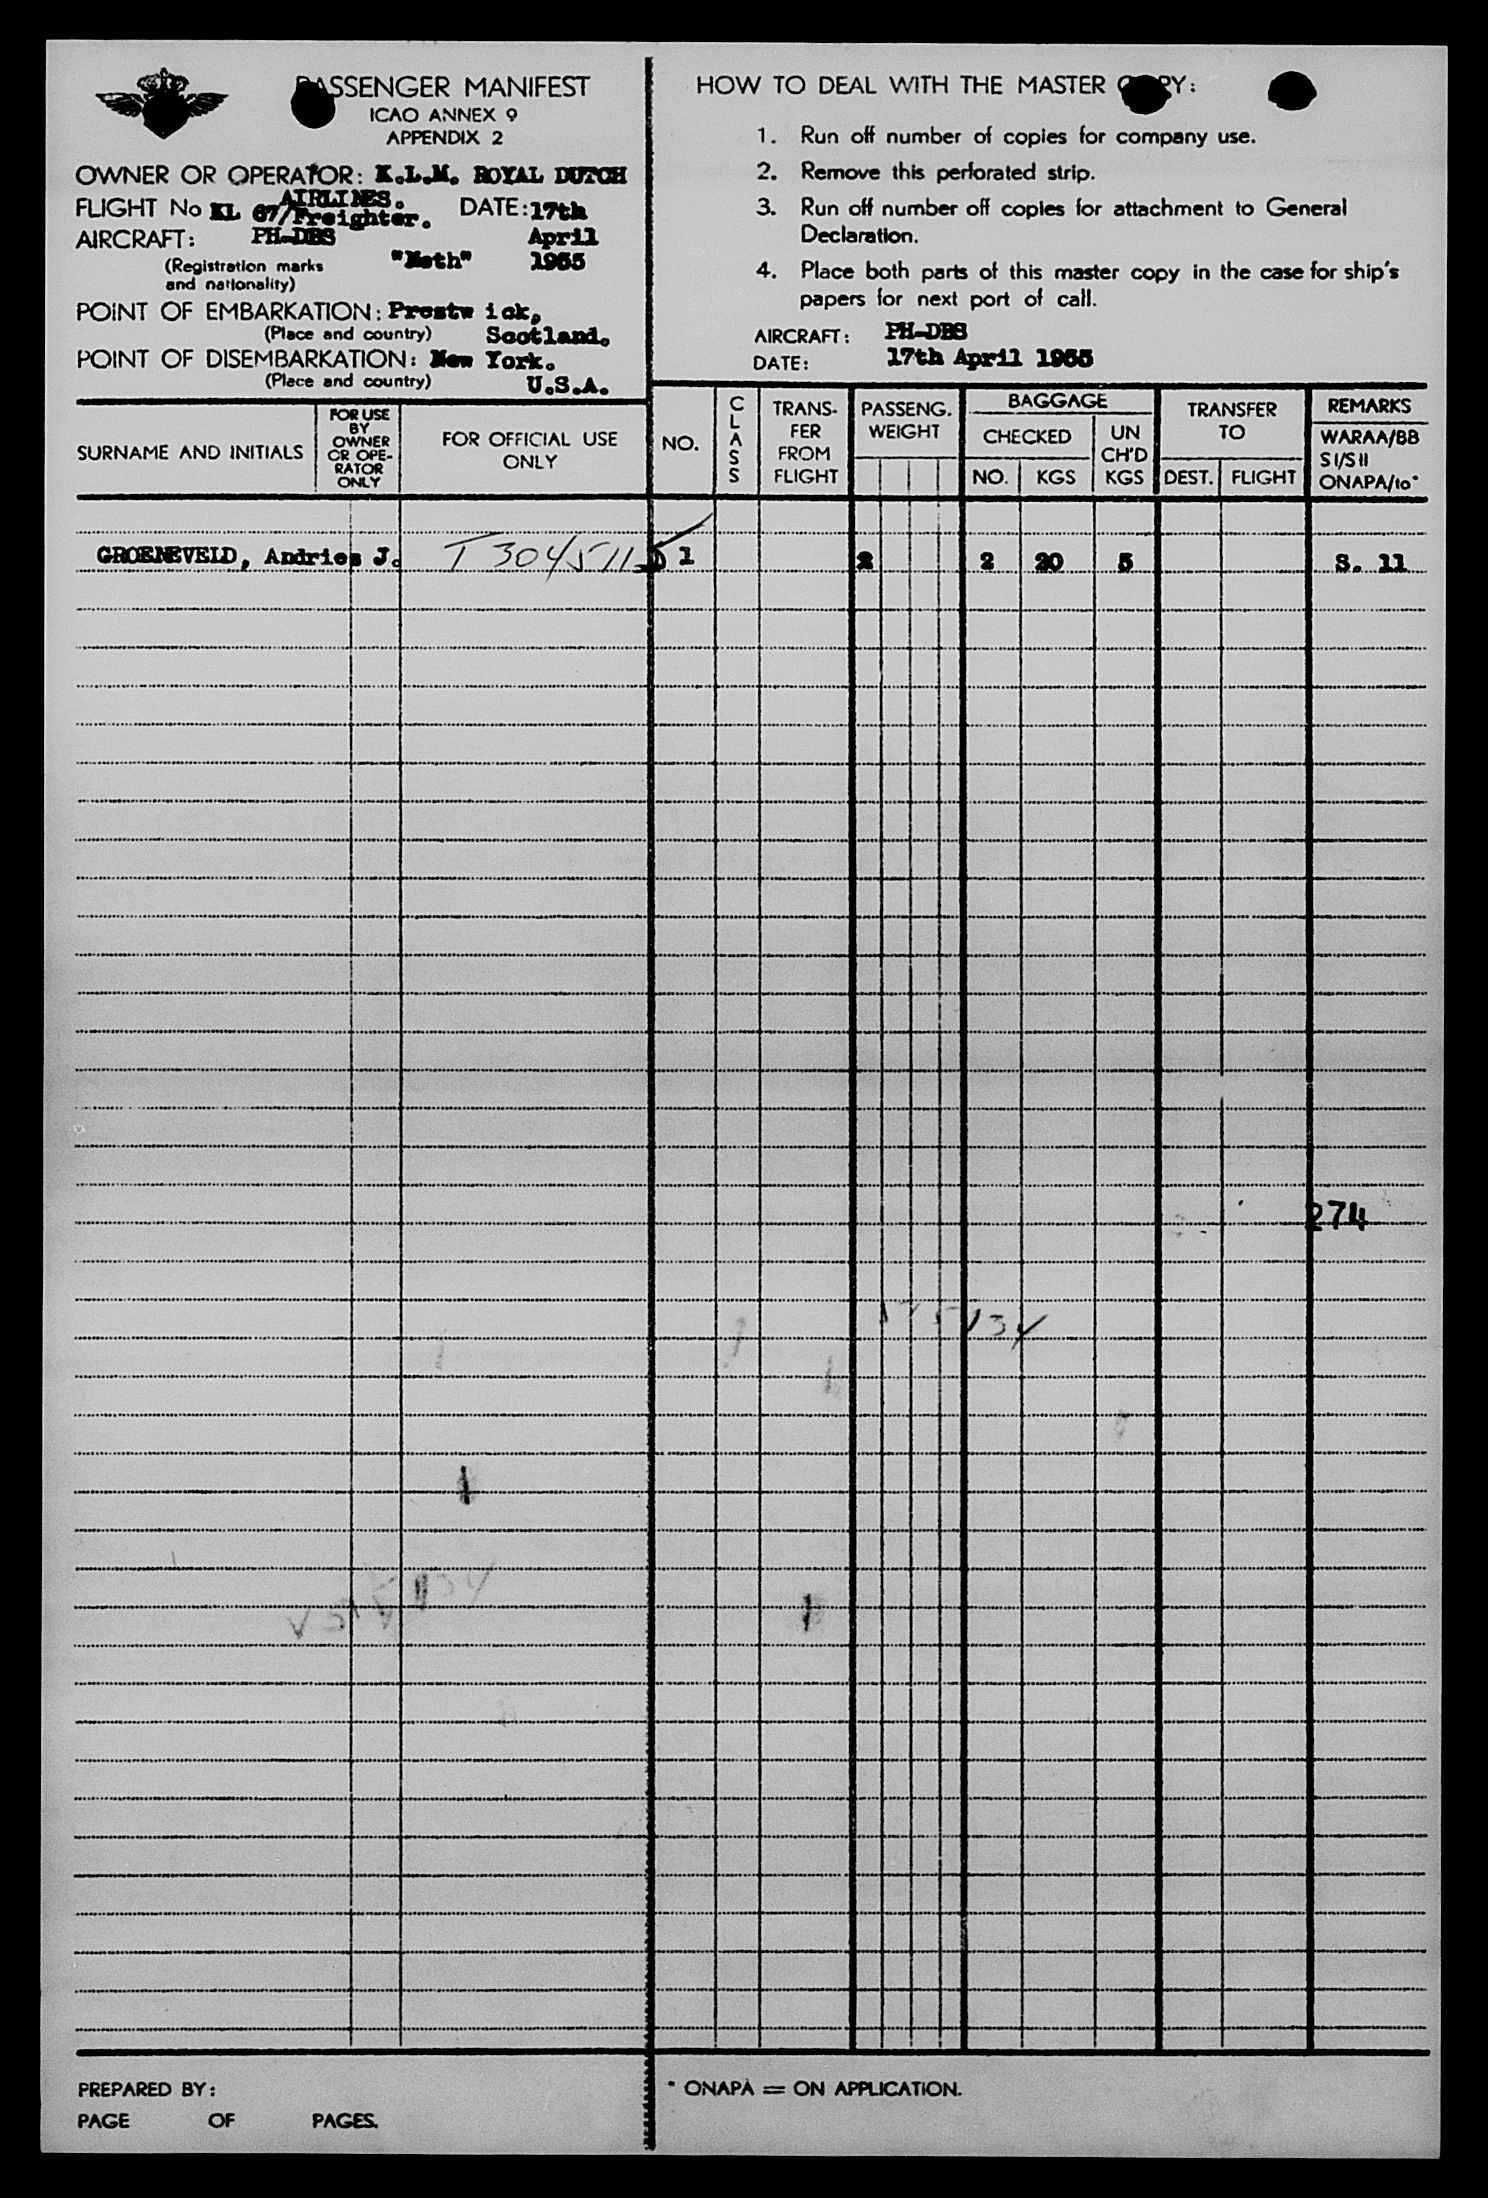 PASSENGER MANIFEST
ICAO ANNEX 9
APPENDIX 2
OWNER OR OPERATOR: K.L.M. ROYAL DUTCH
AIRLINES.
FLIGHT No KL 67/Freighter. DATE: 17th
AIRCRAFT: PH-DBS April
(Registration marks "Neth" 1955
and nationality)
POINT OF EMBARKATION: Prestw ick,
(Place and country) Scotland.
POINT OF DISEMBARKATION: New York.
(Place and country) U.S.A.
HOW TO DEAL WITH THE MASTER COPY:
1. Run off number of copies for company use.
2. Remove this perforated strip.
3. Run off number off copies for attachment to General
Declaration.
4. Place both parts of this master copy in the case for ship's
papers for next port of call.
AIRCRAFT: PH-DBS
DATE: 17th April 1955
SURNAME AND INITIALS
FOR USE
BY
OWNER
OR OPE-
RATOR
ONLY
FOR OFFICIAL USE
ONLY
NO.
CLASS
TRANS-
FER
FROM
FLIGHT
PASSENG.
WEIGHT
BAGGAGE
CHECKED
NO. KGS
UN
CH'D
KGS
TRANSFER
TO
DEST. FLIGHT
REMARKS
WARAA/BB
S I/S II
ONAPA/to*
GROENEVELD, Andries J. T 304511 1 2 2 20 5 S. 11
274
* ONAPA = ON APPLICATION.
PREPARED BY:
PAGE OF PAGES.